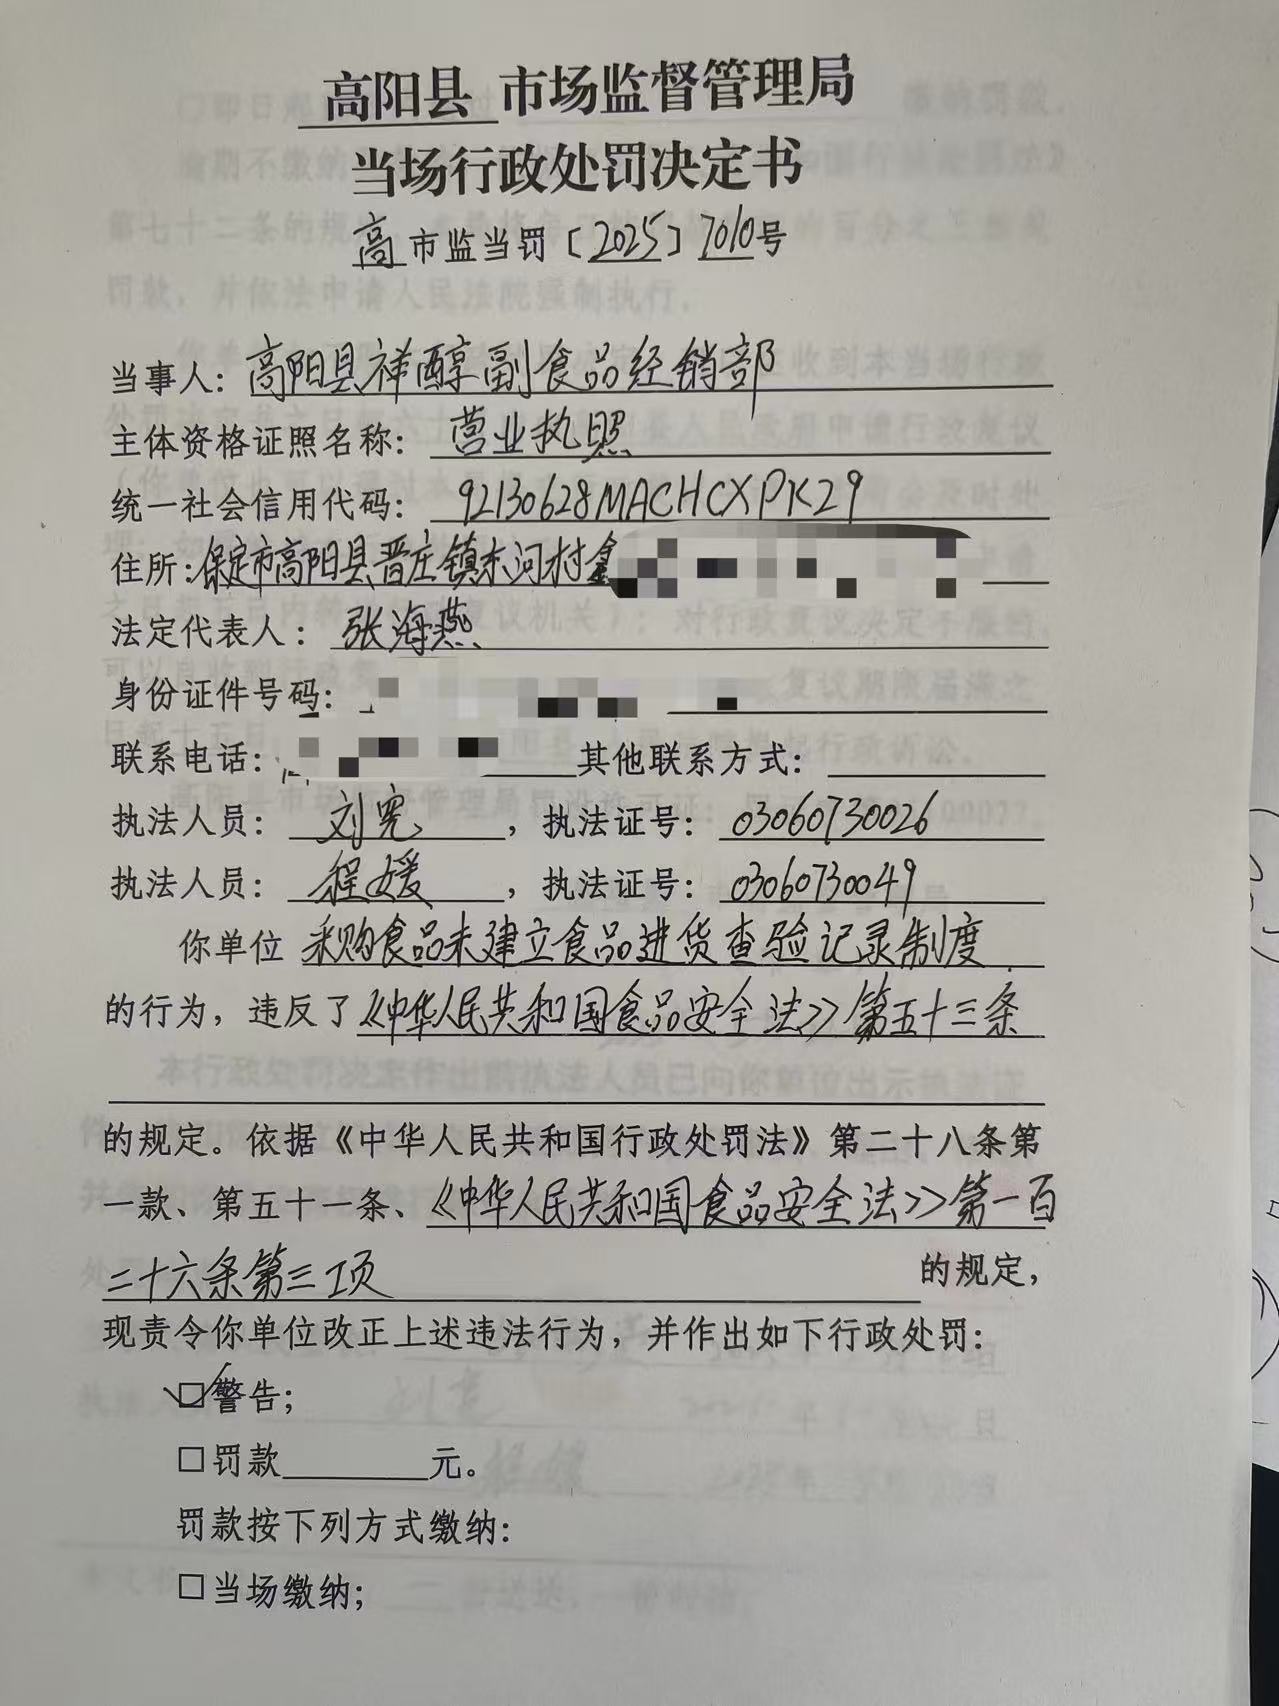 高阳县 市场监督管理局
当场行政处罚决定书
高市监当罚〔2025〕7010号
当事人：高阳县祥醇副食品经销部
主体资格证照名称：营业执照
统一社会信用代码：92130628MACHCXPK29
住所：保定市高阳县晋庄镇东河村鑫
法定代表人：张海燕
身份证件号码：
联系电话： 其他联系方式：
执法人员：刘宪，执法证号：03060730026
执法人员：程媛，执法证号：03060730049
你单位 采购食品未建立食品进货查验记录制度
的行为，违反了《中华人民共和国食品安全法》第五十三条
的规定。依据《中华人民共和国行政处罚法》第二十八条第
一款、第五十一条、《中华人民共和国食品安全法》第一百
二十六条第三项 的规定，
现责令你单位改正上述违法行为，并作出如下行政处罚：
☑警告；
□罚款 元。
罚款按下列方式缴纳：
□当场缴纳；